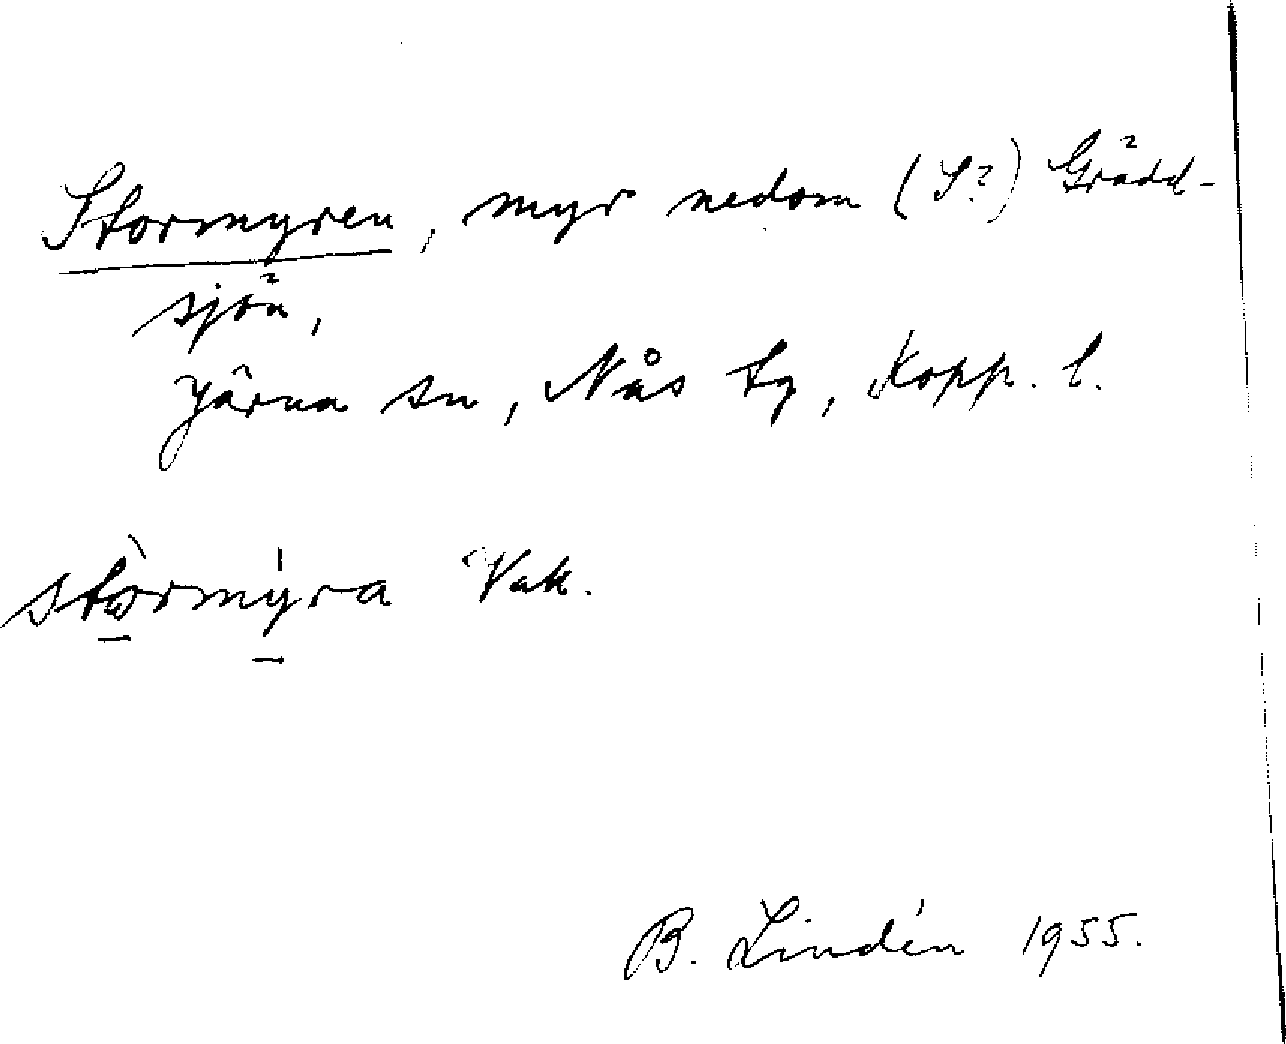 Stormyren, myr nedom (S?) Grädd-
sjön,
Järna sn, Nås tg, Kopp. l.
stòrmýra Vak.
B. Lindén 1955.